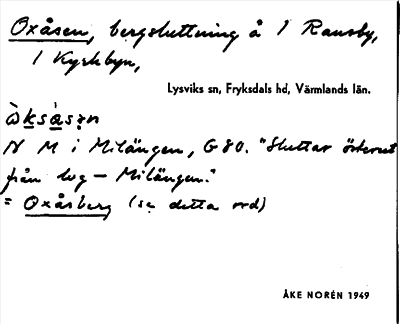 Oxåsen, bergsluttning å 1 Ransby,
1 Kyrkbyn,
Lysviks sn, Fryksdals hd, Värmlands län.
N M i Milängen, G80. "Sluttar österut
från lvg – Milängen."
= Oxåsberg (se detta ord)
ÅKE NORÉN 1949